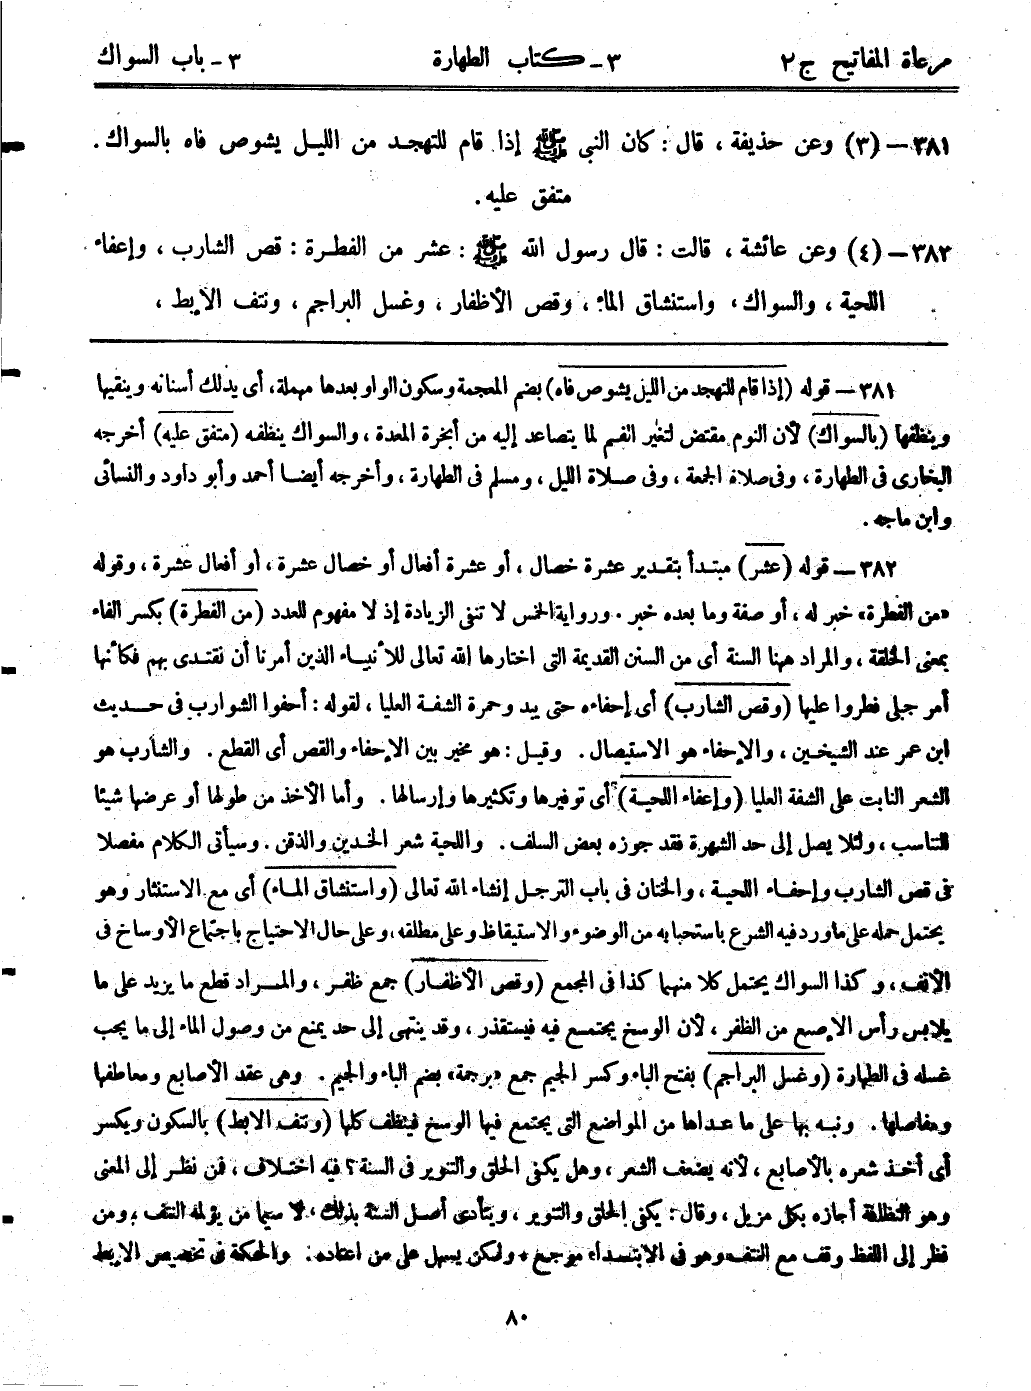 مرعاة المفاتيح ج ٢ ٣- كتاب الطهارة ٣- باب السواك
٣٨١- (٣) وعن حذيفة ، قال : كان النبى ﷺ إذا قام للتهجد من الليل يشوص فاه بالسواك .
متفق عليه .
٣٨٢- (٤) وعن عائشة ، قالت : قال رسول الله ﷺ : عشر من الفطرة : قص الشارب ، وإعفاء
اللحية ، والسواك ، واستنشاق الماء ، وقص الأظفار ، وغسل البراجم ، ونتف الإبط ،
٣٨١- قوله (إذا قام للتهجد من الليل يشوص فاه) بضم المعجمة وسكون الواو بعدها مهملة، أى يدلك أسنانه وينقيها
وينظفها (بالسواك) لأن النوم مقتض لتغير الفم لما يتصاعد إليه من أبخرة المعدة ، والسواك ينظفه (متفق عليه) أخرجه
البخارى فى الطهارة ، وفى صلاة الجمعة ، وفى صلاة الليل ، ومسلم فى الطهارة ، وأخرجه أيضا أحمد وأبو داود والنسائى
وابن ماجه .
٣٨٢- قوله (عشر) مبتدأ بتقدير عشرة خصال ، أو عشرة أفعال أو خصال عشرة ، أو أفعال عشرة ، وقوله
«من الفطرة» خبر له ، أو صفة وما بعده خبر . ورواية الخمس لا تنفى الزيادة إذ لا مفهوم للعدد (من الفطرة) بكسر الفاء
بمعنى الخلقة ، والمراد ههنا السنة أى من السنن القديمة التى اختارها الله تعالى للأنبياء الذين أمرنا أن نقتدى بهم فكأنها
أمر جبلى فطروا عليها (وقص الشارب) أى إحفاءه حتى يبد وحمرة الشفة العليا ، لقوله : أحفوا الشوارب فى حديث
ابن عمر عند الشيخين ، والإحفاء هو الاستيصال . وقيل : هو مخير بين الإحفاء والقص أى القطع . والشارب هو
الشعر النابت على الشفة العليا (وإعفاء اللحية) أى توفيرها وتكثيرها وإرسالها . وأما الأخذ من طولها أو عرضها شيئا
للتناسب ، ولئلا يصل إلى حد الشهرة فقد جوزه بعض السلف . واللحية شعر الخدين والذقن . وسيأتى الكلام مفصلا
فى قص الشارب وإحفاء اللحية ، والختان فى باب الترجل إنشاء الله تعالى (واستنشاق الماء) أى مع الاستنثار وهو
يحتمل حمله على ما ورد فيه الشرع باستحبابه من الوضوء والاستيقاظ وعلى مطلقه، وعلى حال الاحتياج باجتماع الأوساخ فى
الأنف ، وكذا السواك يحتمل كلا منهما كذا فى المجمع (وقص الأظفار) جمع ظفر ، والمراد قطع ما يزيد على ما
يلابس رأس الإصبع من الظفر ، لأن الوسخ يجتمع فيه فيستقذر ، وقد ينتهى إلى حد يمنع من وصول الماء إلى ما يجب
غسله فى الطهارة (وغسل البراجم) بفتح الباء وكسر الجيم جمع «برجمة» بضم الباء والجيم . وهى عقد الأصابع ومعاطفها
ومفاصلها . ونبه بها على ما عداها من المواضع التى يجتمع فيها الوسخ فينظف كلها (ونتف الابط) بالسكون ويكسر
أى أخذ شعره بالأصابع ، لأنه يضعف الشعر ، وهل يكفى الحلق والتنوير فى السنة؟ فيه اختلاف ، فمن نظر إلى المعنى
وهو النظافة أجازه بكل مزيل ، وقال : يكفى الحلق والتنوير ، ويتأدى أصل السنة بذلك، لا سيما من يؤلمه النتف ، ومن
نظر إلى اللفظ وقف مع النتف وهو فى الابتداء موجع ، ولكن يسهل على من اعتاده . والحكمة فى تخصيص الإبط
٨٠